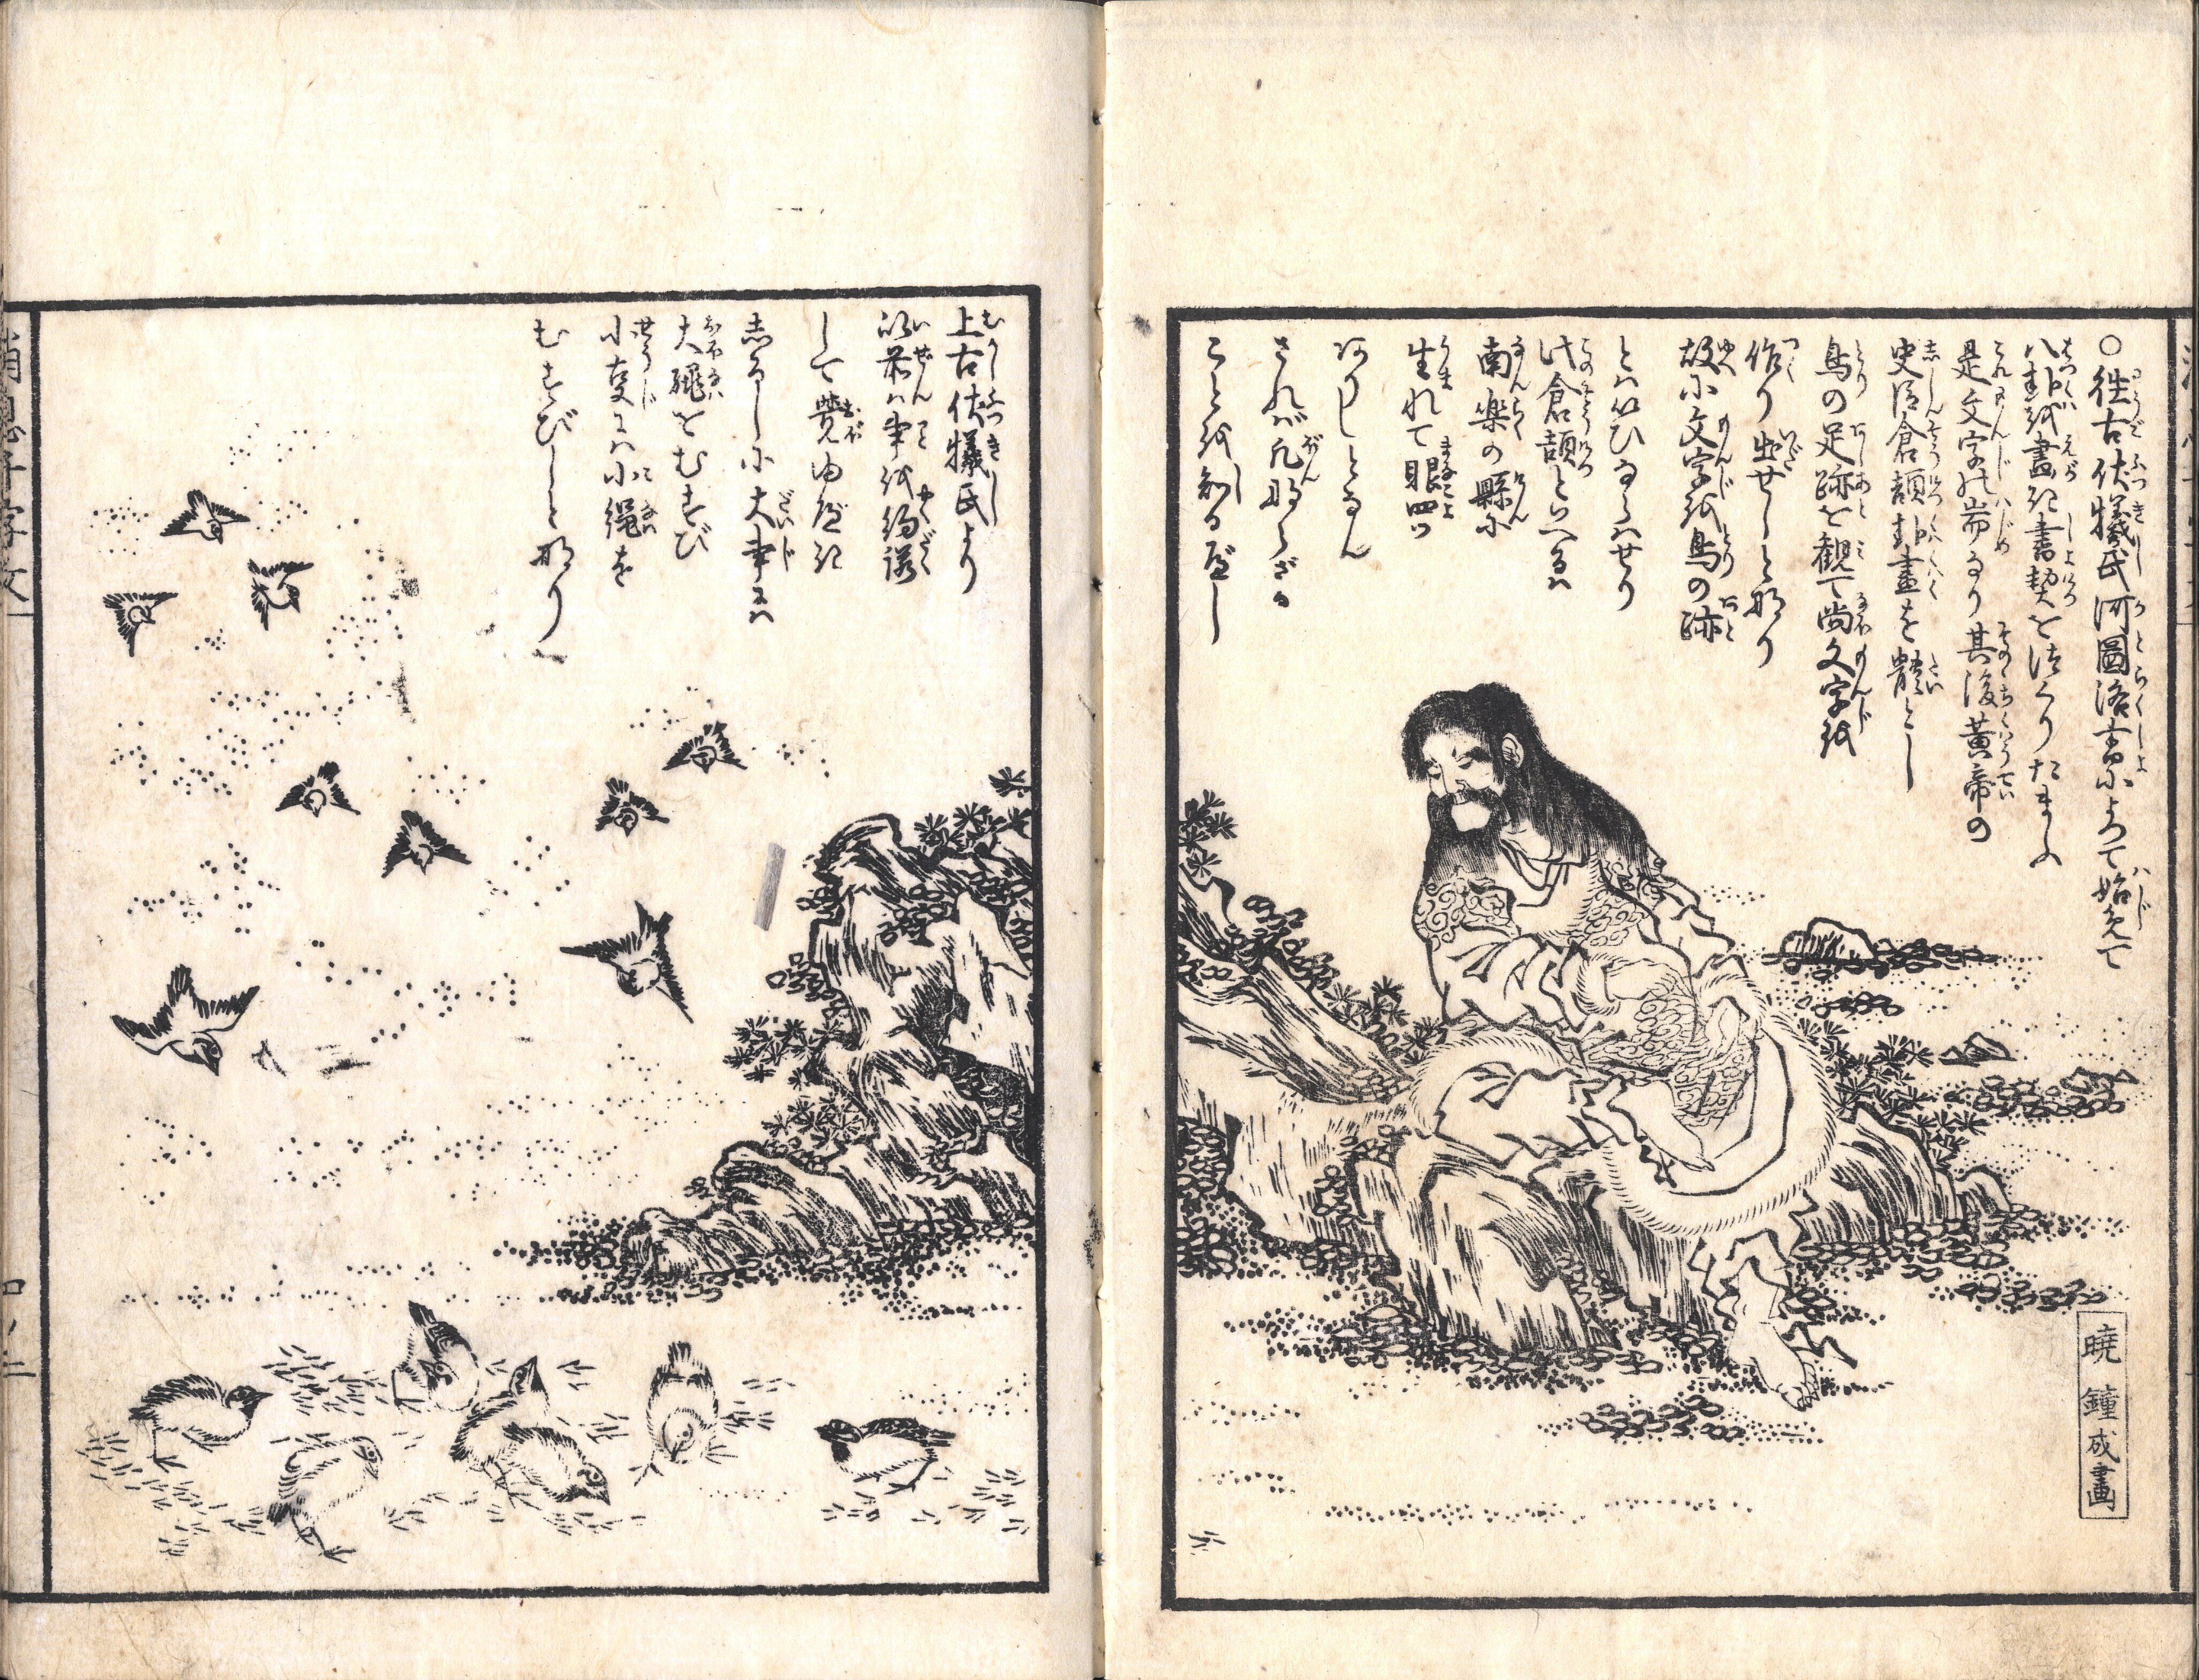 ○徃古伏犠氏河圖洛書によつて始めて
八卦を畫き書契をつくりたまふ
是文字の耑なり其後黄帝の
史臣倉頡卦畫を體とし
鳥の足跡を観て尚文字を
作り出せしと那り
故に文字を鳥の跡
とハいひならハせり
此倉頡といへるハ
南楽の縣に
生れて眼四ツ
ありしとなん
されバ凡ならざる
ことを知るべし
暁鐘成畫
上古伏犠氏より
以前ハ事を約諾
して覺ゆべき
志るしに大事にハ
大繩をむすび
小事にハ小縄を
むすびしと那り